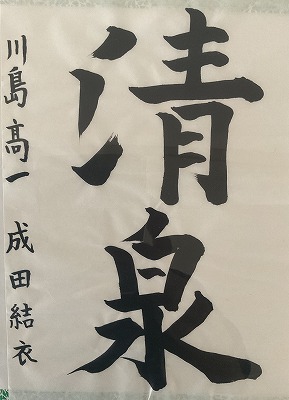 清泉
川島高一 成田結衣